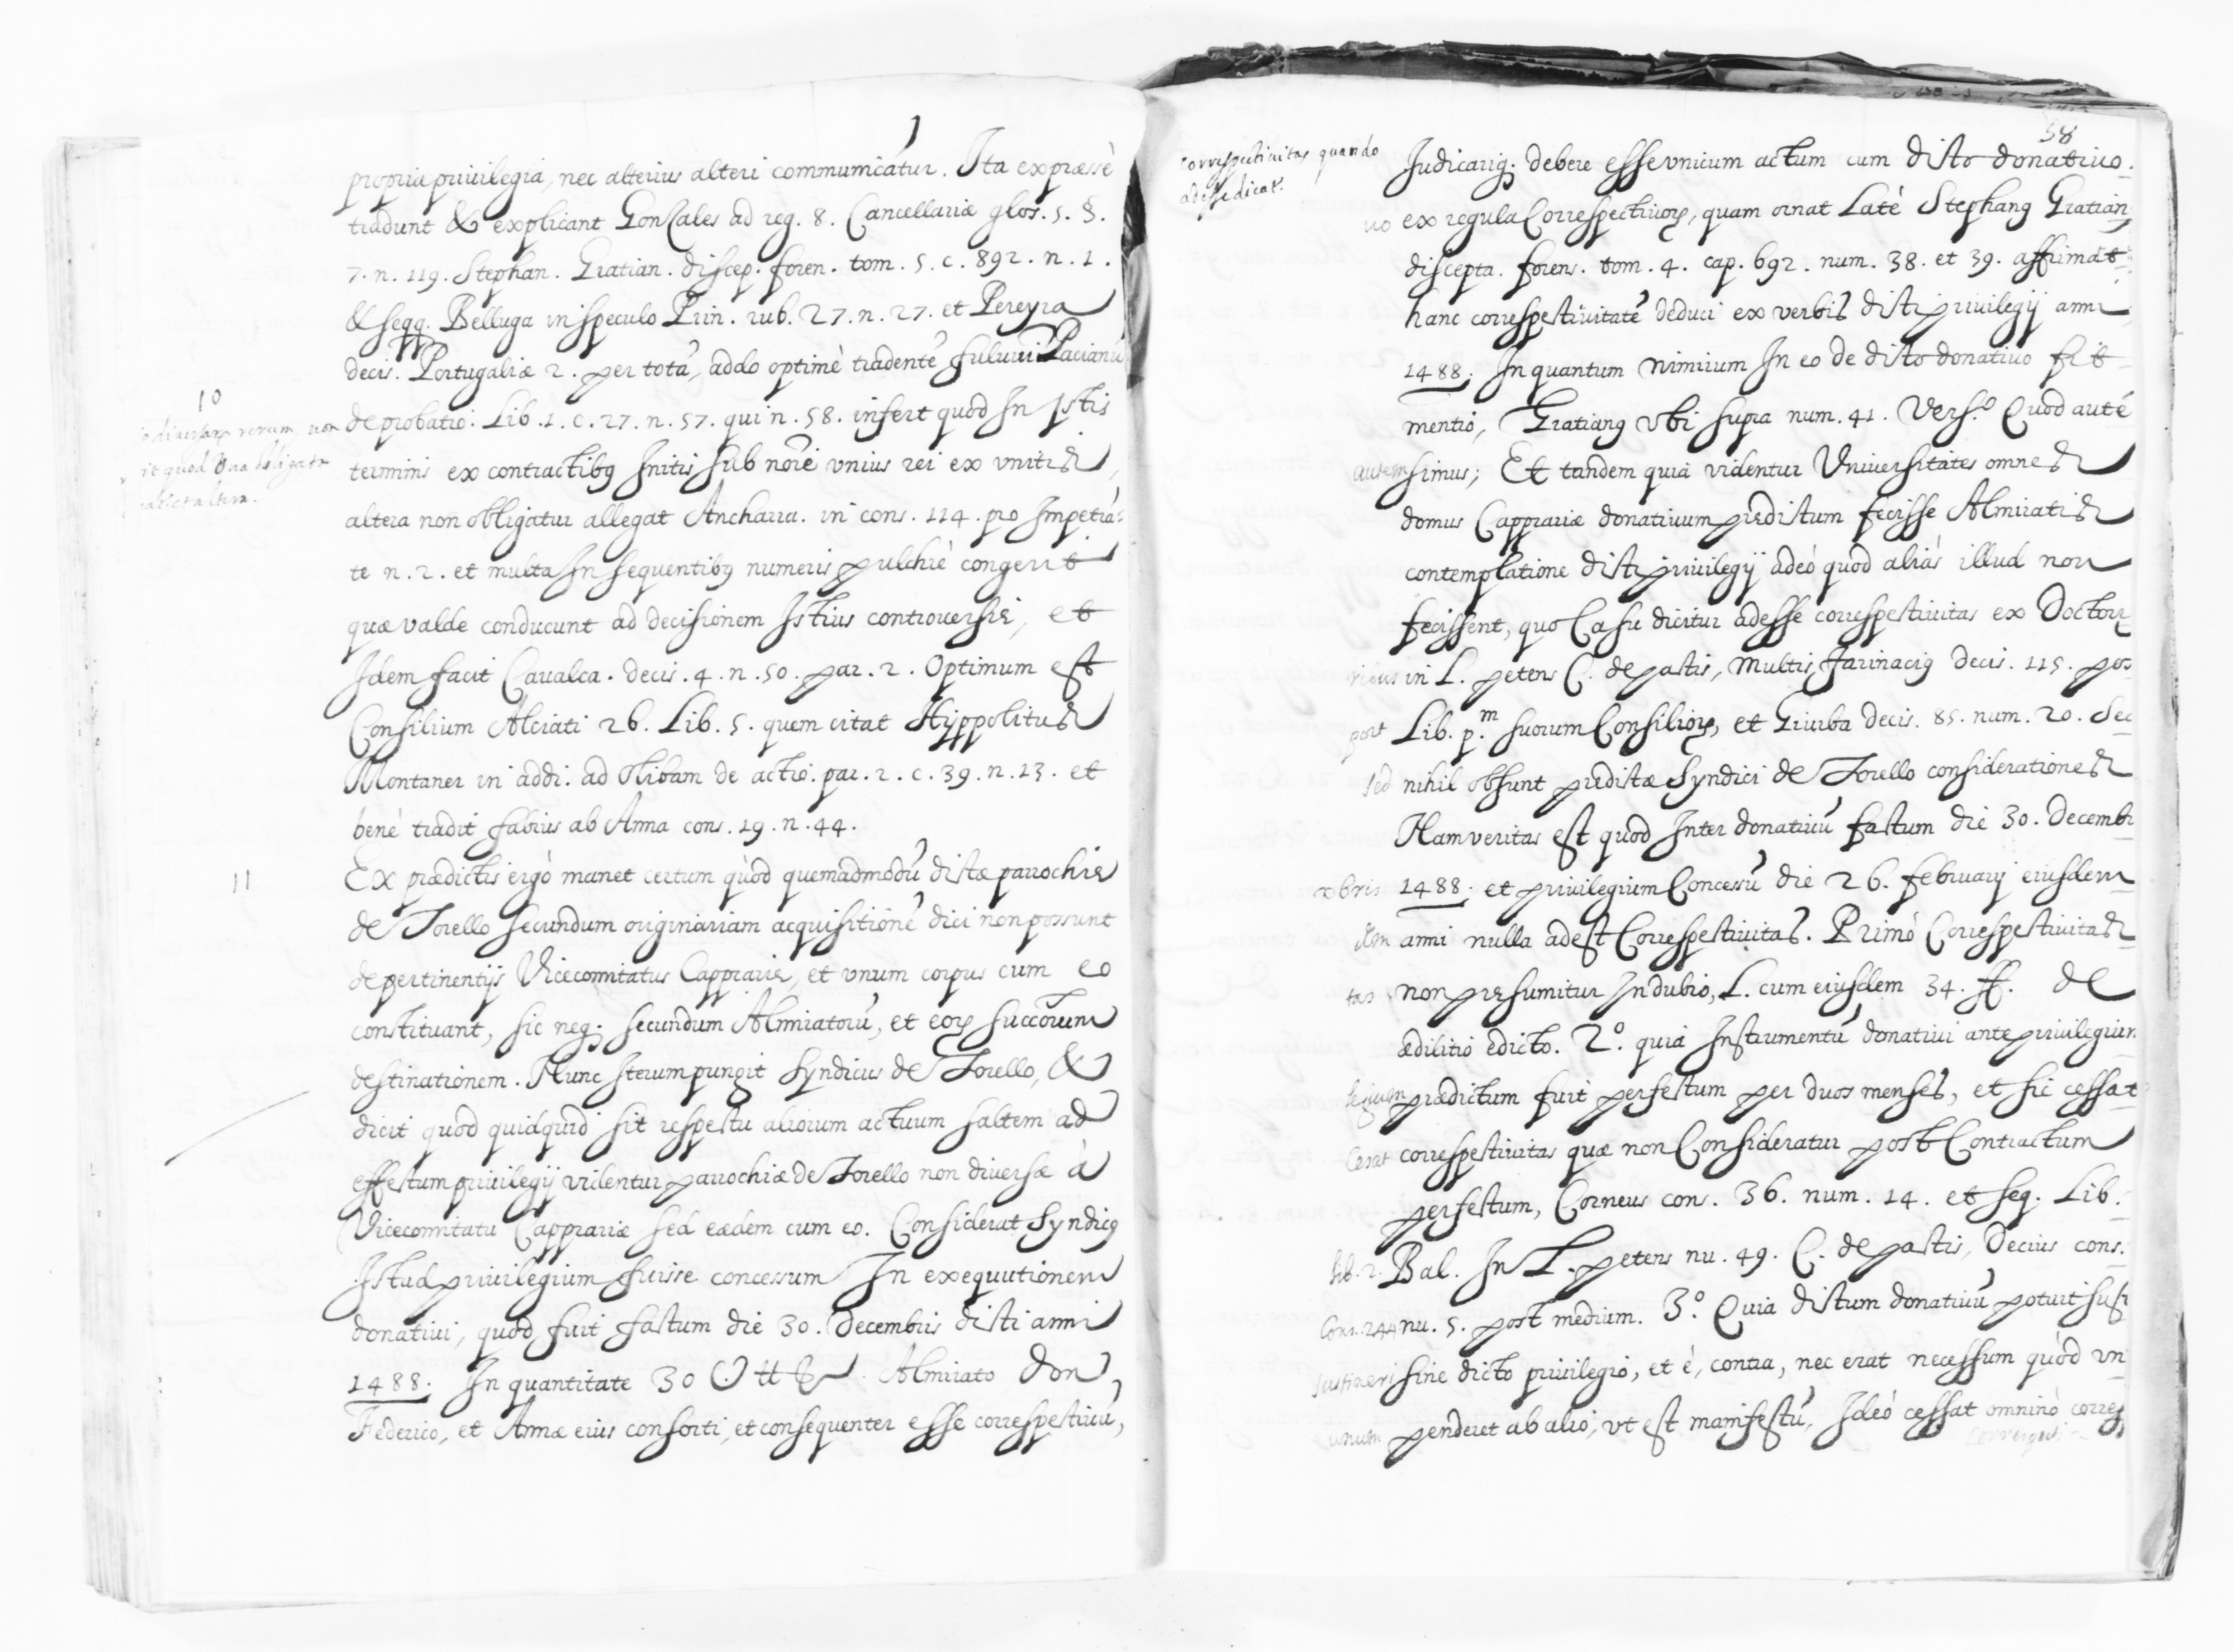 propria priuilegia, nec alterius alteri communicátur. Ita expræssè
tradunt & explicant Gonsales ad reg. 8. Cancellariæ glos. 5. §.
7. n. 119. Stephan. Gratian. discep. foren. tom. 5. c. 892. n. 1.
& seqq. Belluga in speculo Prin. rub. 27. n. 27. et Pereyra
decis. Portugaliæ 2. per totã, addo optimè tradentẽ fuluiũ Pacianũ
10
de probatio. Lib. 1. c. 27. n. 57. qui n. 58. infert quod In Istis
diuersarȝ rerum non
quod Vna obligata
altera.
terminis ex contractibȝ Initis sub nõie vnius rei ex vnitis,
altera non obligatur allegat Ancharra. in cons. 114. pro Impetrã:
te n. 2. et multa In sequentibȝ numeris pulchrè congerit
quæ valde conducunt ad decisionem Istius controuersię, et
Idem facit Caualca. decis. 4. n. 50. par. 2. Optimum est
Consilium Alciati 26. Lib. 5. quem citat Hyppolitus
Montaner in addi. ad Olibam de actio. par. 2. c. 39. n. 13. et
benè tradit fabius ab Anna cons. 19. n. 44.
11
Ex prædictis ergò manet certum quòd quemadmodũ dictæ parrochię
de Torello secundum originariam acquisitionẽ dici non possunt
de pertinentijs Vicecomitatus Capprarię, et vnum corpus cum eo
constituant, sic neqȝ secundum Almiratorũ, et eorȝ succõrum
destinationem. Nunc Iterum pungit Syndicus de Torello, &
dicit quod quidquid sit respectu aliorum actuum saltem ad
effectum priuilegij videntur parrochiæ de Torello non diuersæ à
Vicecomitatu Capprariæ sed eædem cum eo. Considerat Syndicȝ
Istud priuilegium fuisse concessum In exequutionem
donatiui, quod fuit factum die 30. Decembris dicti anni
1488. In quantitate 30 Almirato Don
Federico, et Annæ eius consorti, et consequenter esse correspectiuũ,
58
correspectiuitas quando
adesse dicat.
Iudicariqȝ debere esse vnicum actum cum dicto donatiuo.
uo ex regula Correspectiuorȝ, quam ornat Latè Stephanȝ Gratian
discepta. forens. tom. 4. cap. 692. num. 38. et 39. affirmãt
hanc correspectiuitatẽ deduci ex verbis dicti priuilegij anni
1488. In quantum nimirum In eo de dicto donatiuo fit
mentio, Gratianȝ vbi supra num. 41. Vers.º Quod autẽ
autem simus; Et tandem quia videntur Vniuersitates omnes
domus Capprariæ donatiuum prędictum fecisse Almiratis
contemplatione dicti priuilegij adeò quod aliàs illud non
fecissent, quo Casu dicitur adesse correspectiuitas ex Doctorr
ribus in L. petens C. de pactis, Multis, Farinaciȝ decis. 115. pos
post Lib. p.m suorum Consiliorȝ, et Giurba decis. 85. num. 20. Sec
sed nihil obsunt prędictæ Syndici de Torello consideratione​s
Nam veritas est quod Inter donatiuũ factum die 30. Decembr
xbris 1488. et priuilegium Concessũ die 26. februarij eiusdem
dem anni nulla adest Correspectiuitas. Primò Correspectiuitas
tas non pręsumitur In dubio, L. cum eiusdem 34. ff. de
ædilitio edicto. 2.º quia Instrumentũ donatiui ante priuilegium
legium prædictum fuit perfectum per duos menses, et sic cessat
cesat correspectiuitas quæ non Consideratur post Contractum
perfectum, Corneus cons. 36. num. 14. et seq. Lib.
lib. 2. Bal. In L. petens nu. 49. C. de pactis, Decius cons.
Cons. 244 nu. 5. post medium. 3.º Quia dictum donatiuũ potuit sust
sustineri sine dicto priuilegio, et è, contra, nec erat necessum quòd vn
unum penderet ab alio, vt est manifestũ, Ideò cessat omninò corres
correspecti